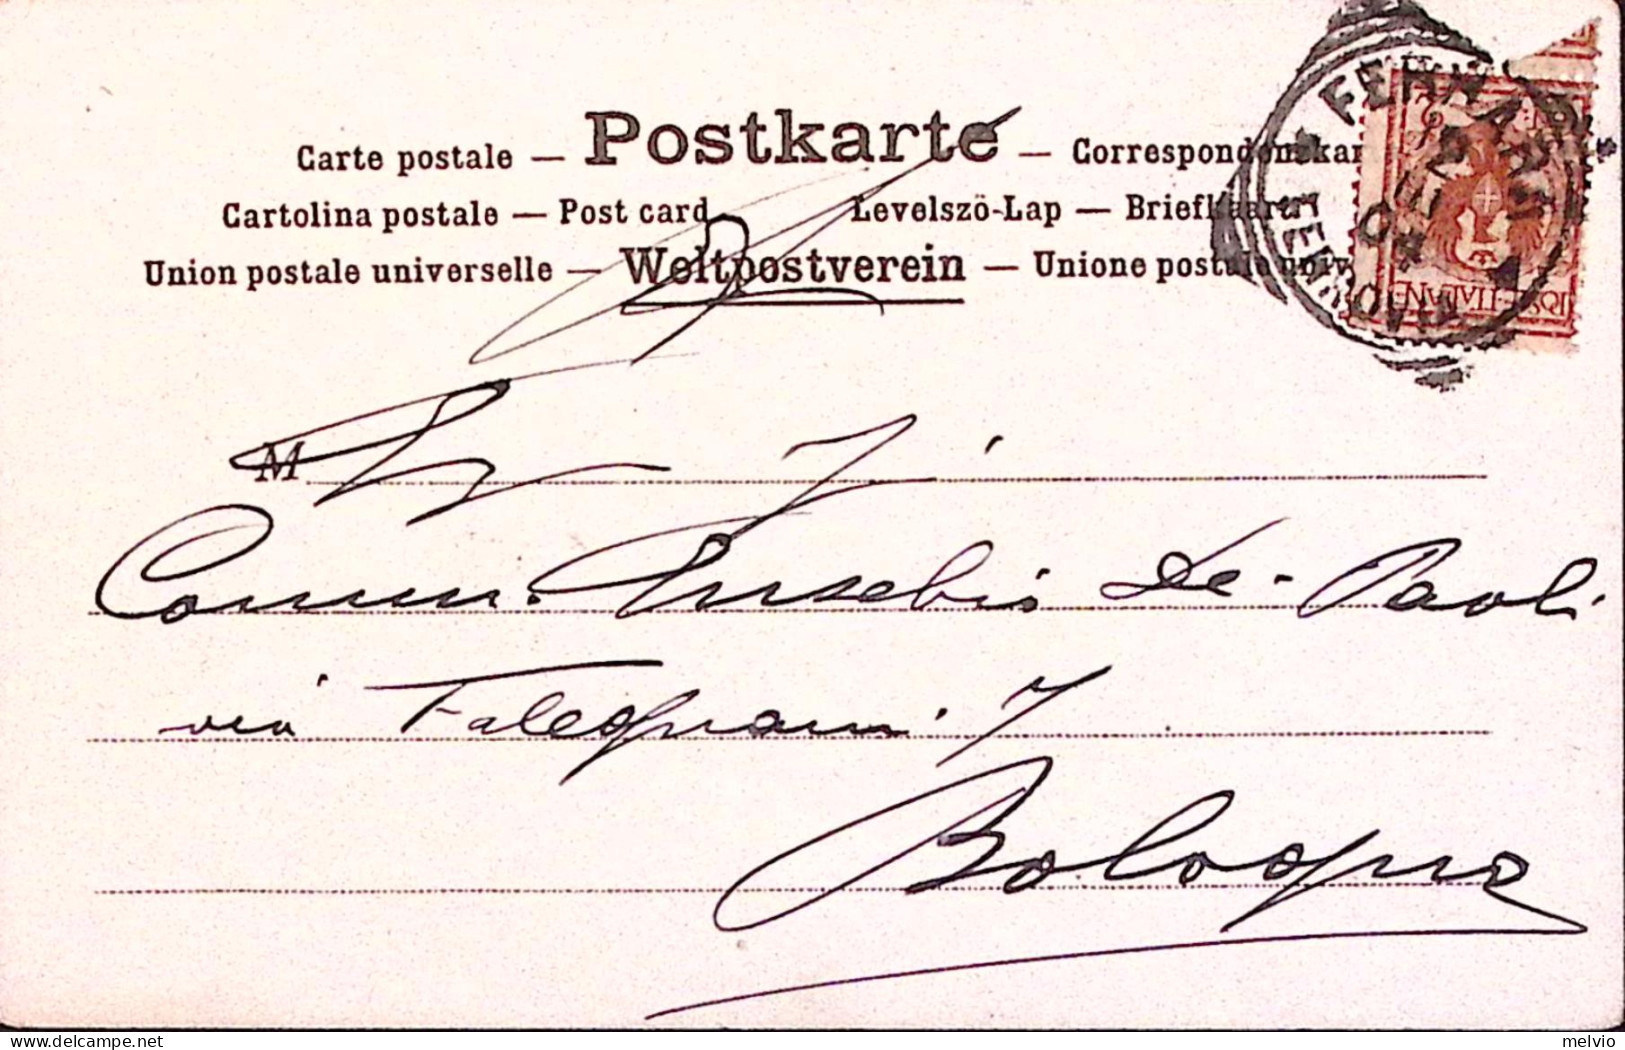 Carte postale — Postkarte — Correspondenskar
Cartolina postale — Post card Levelszö-Lap — Briefkaart
Union postale universelle — Weltpostverein — Unione postale univ
FERRARA
2
04
FERROVIA
POSTE ITALIANE
M
Comm. Eusebio De-Paoli
via Falegnami 7
Bologna
melvio